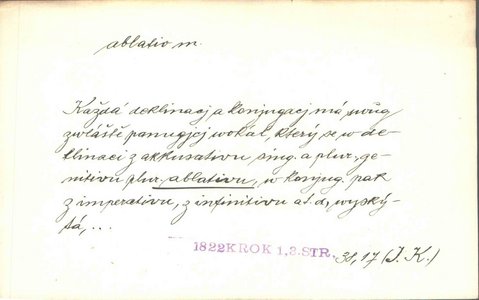 ablativ m.
Každá deklinacj a konjugacj má swůg
zwláště panugjcj wokal, který se w de-
klinaci z akkusativu, sing. a plur., ge-
nitivu plur. ablativu, w konjug. pak
z imperativu, z infinitivu a t. d., wyský-
tá, ...
1822 KROK 1,2. STR. 38,17 (J. K.)